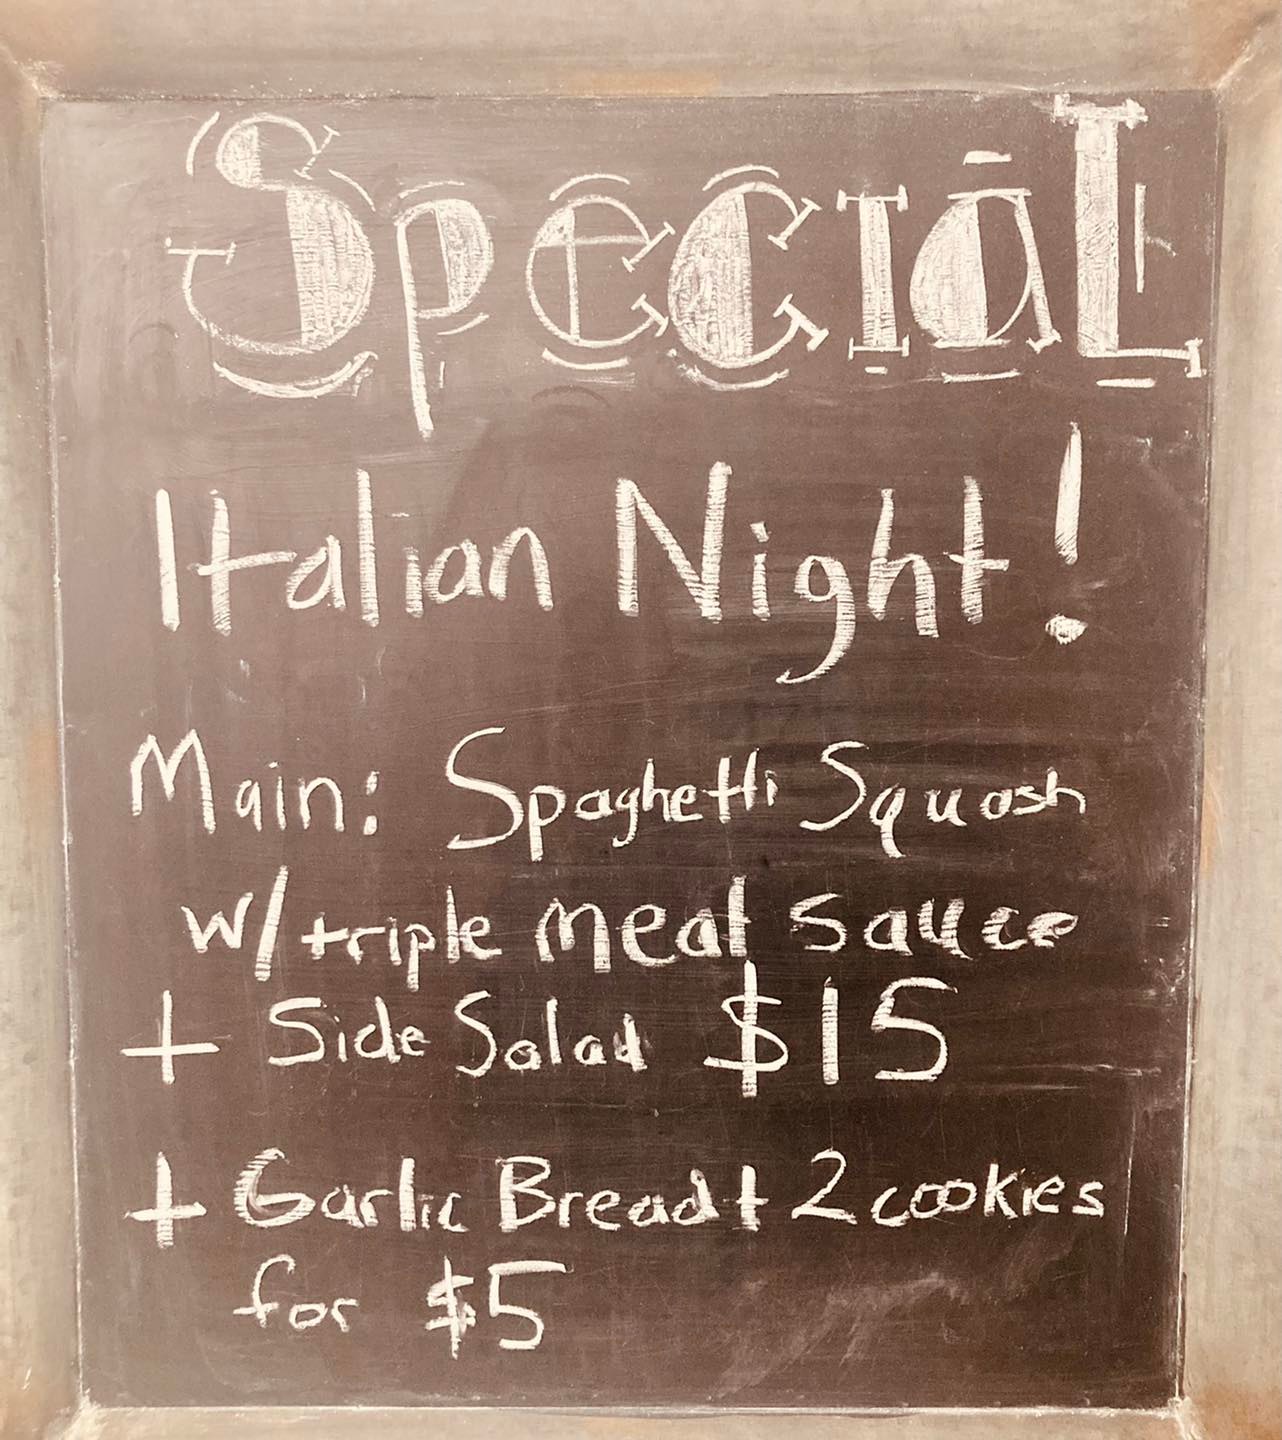 SpecIaL
Italian Night!
Main: Spaghetti Squash
w/ triple meat sauce
+ Side Salad $15
+ Garlic Bread + 2 cookies
for $5